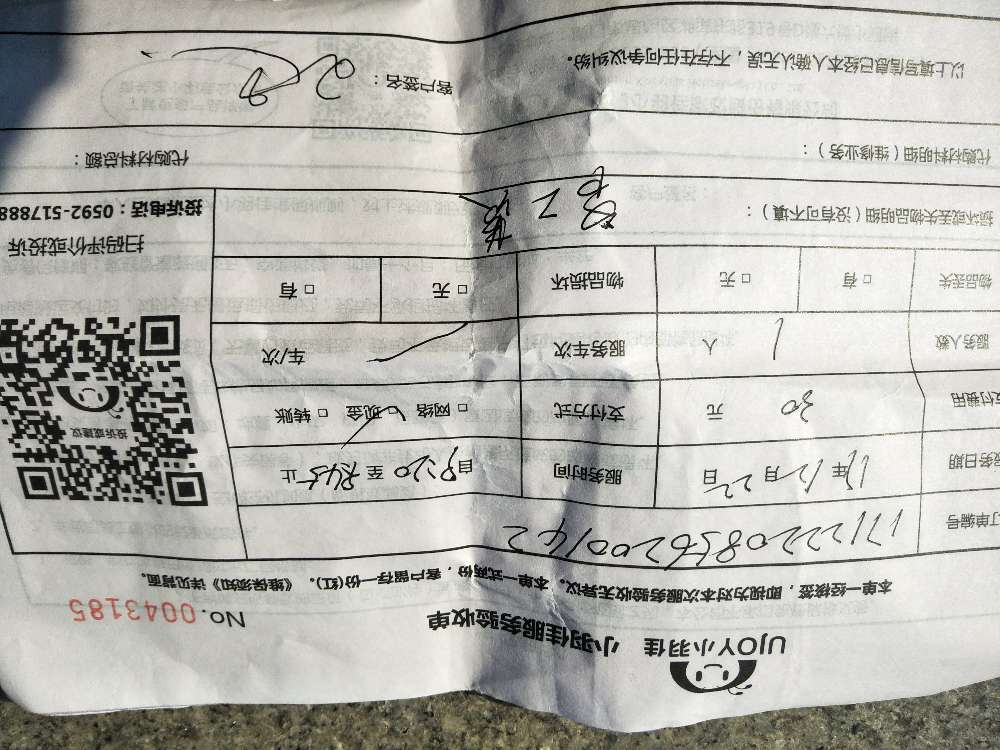 UJOY小羽佳 小羽佳服务验收单 No. 0043185
本单一经核签，即视为对本次服务验收无异议。本单一式两份，客户留存一份(红)。《维保须知》详见背面。
订单编号 1712220856200142
服务日期 17年12月22日 服务时间 自 至 止
支付费用 30 元 支付方式 □ 网络 □ 现金 □ 转账
服务人数 1 人 服务车次 车/次
物品丢失 □ 有 □ 无 物品损坏 □ 无 □ 有
投诉或建议
扫码评价或投诉
投诉电话：0592-517888
损坏或丢失物品明细（没有可不填）：
代购材料明细（维修业务）： 代购材料总额：
以上填写信息已经本人确认无误，不存在任何争议纠纷。 客户签名：